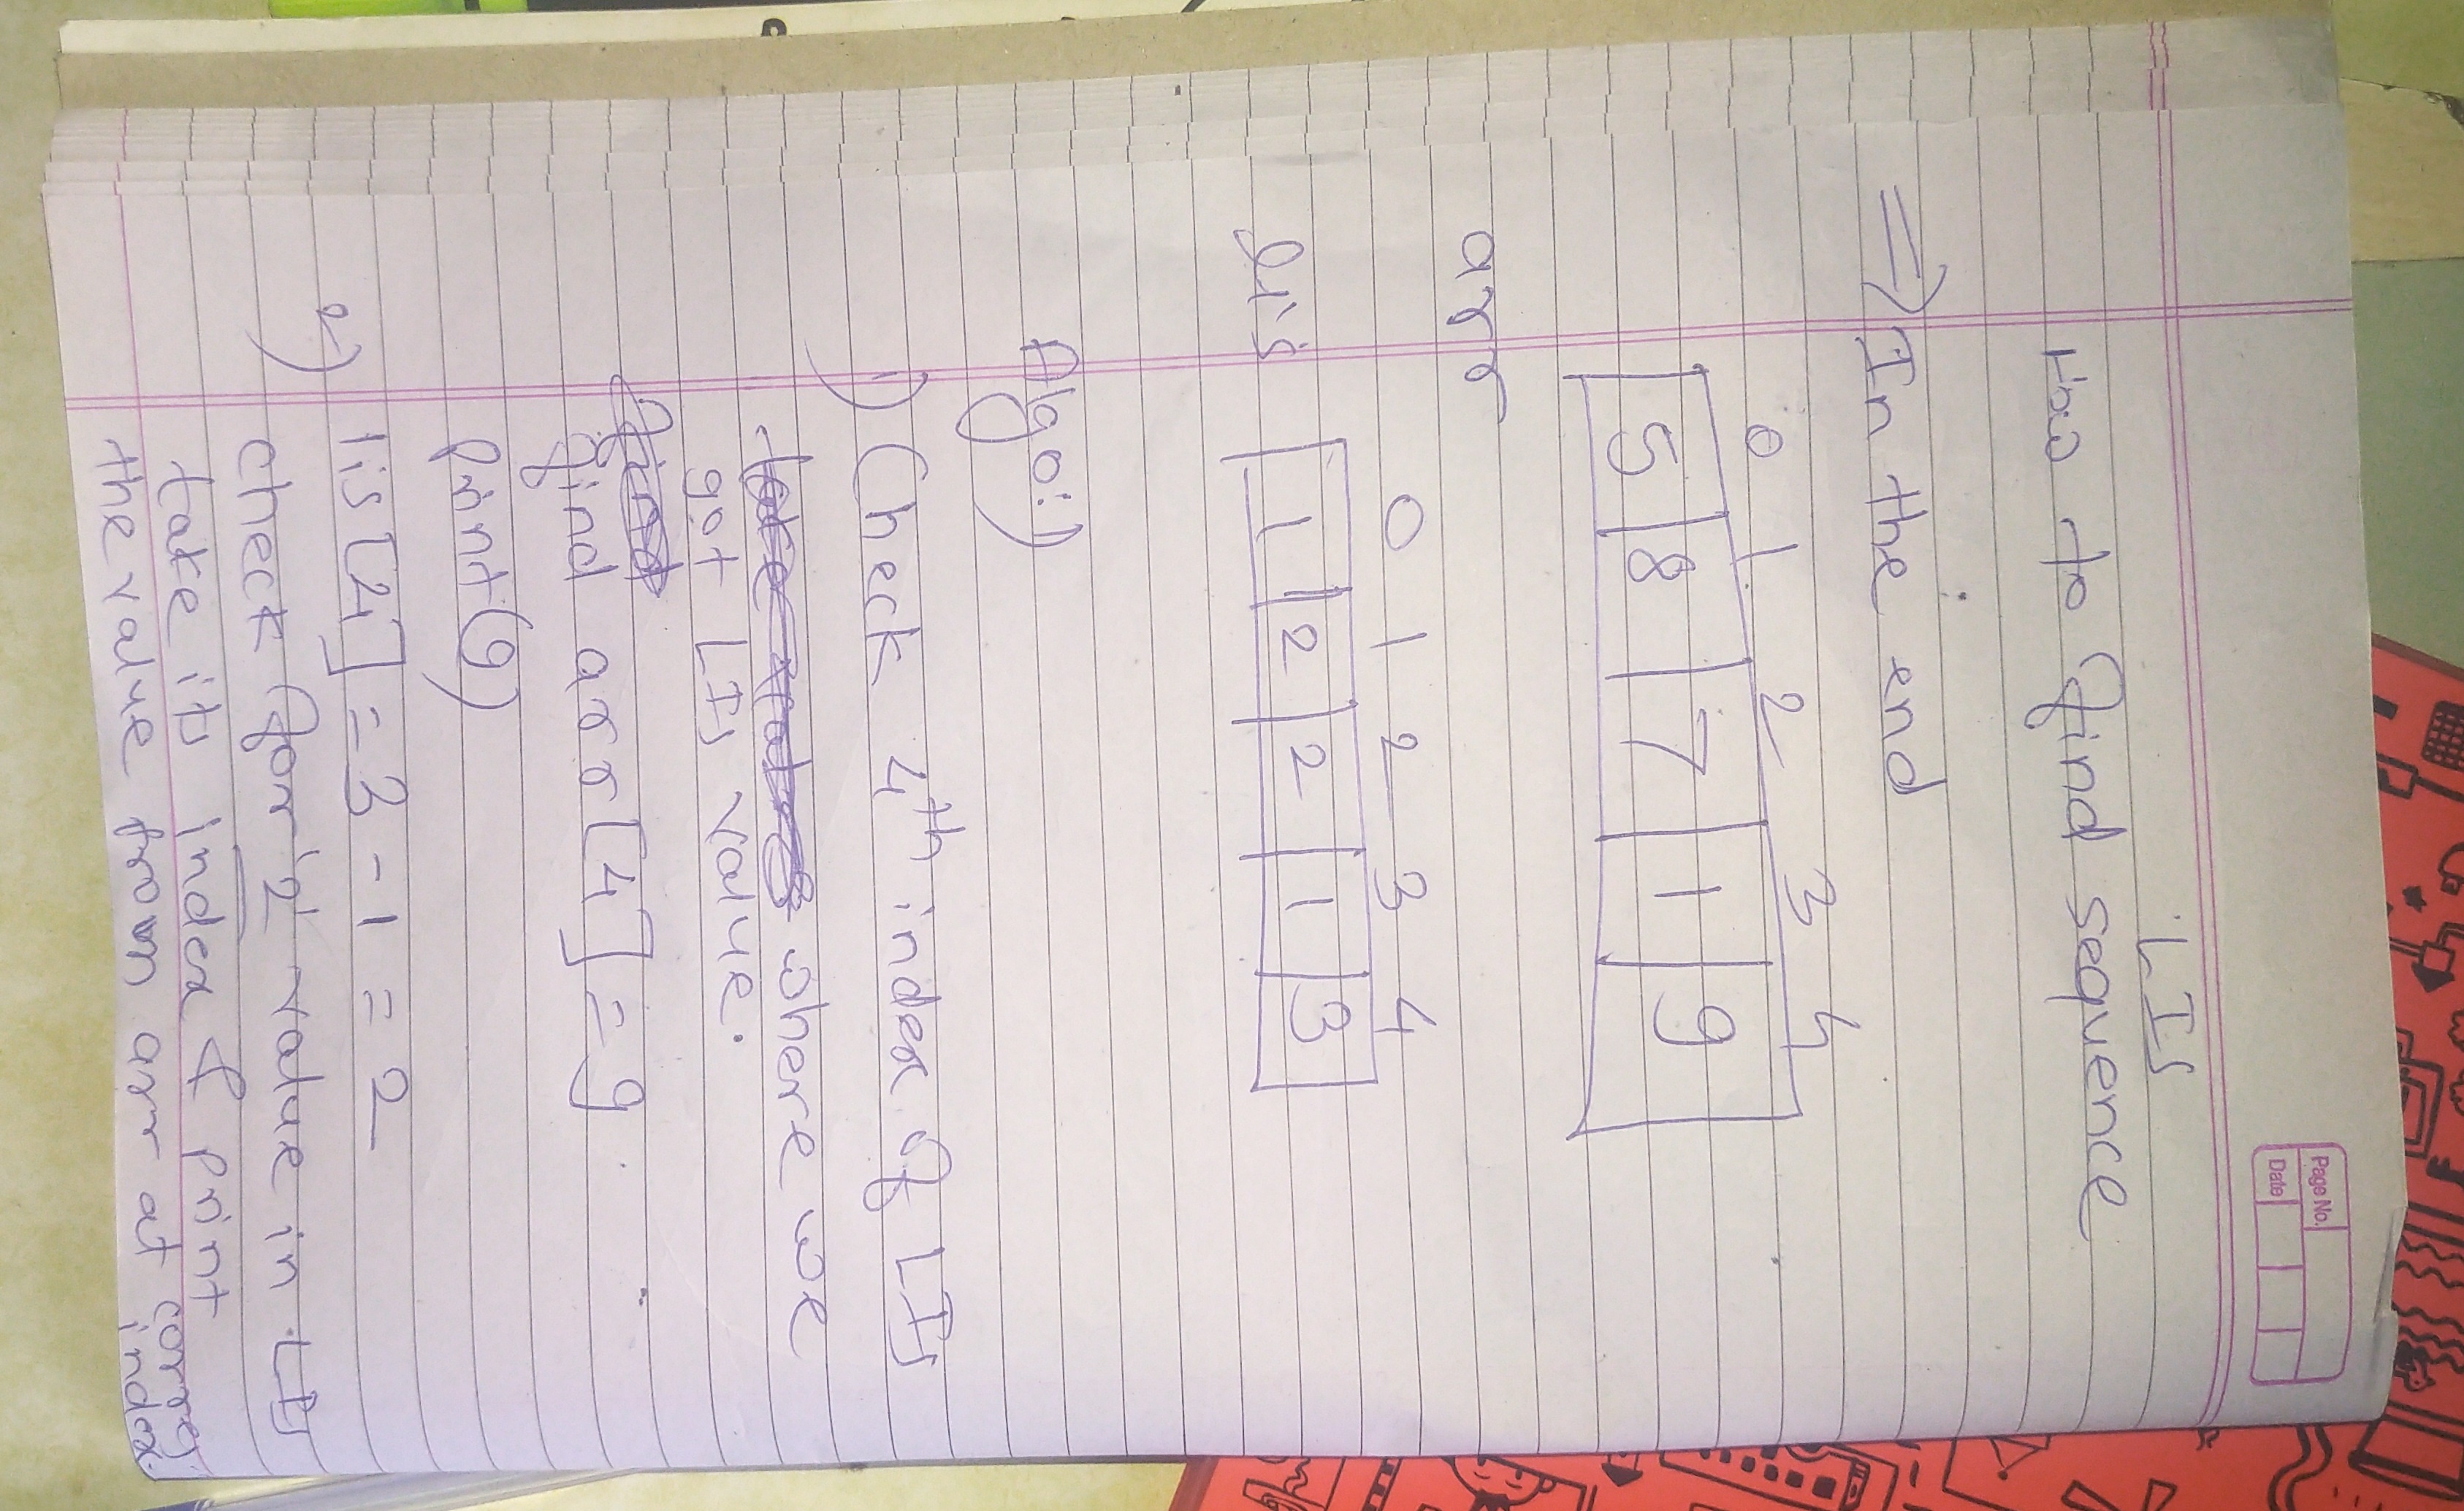 Page No.
Date
LIS
How to find sequence
=> In the end
0 1 2 3 4
5 8 7 1 9
arr
0 1 2 3 4
lis 1 2 2 1 3
Algo:)
1) Check 4th index of LIS
where we
got LIS value.
find arr[4] = 9
Print(9)
2) lis[4] = 3 - 1 = 2
check for '2' value in LIS
take its index & print
the value from arr at corres
index